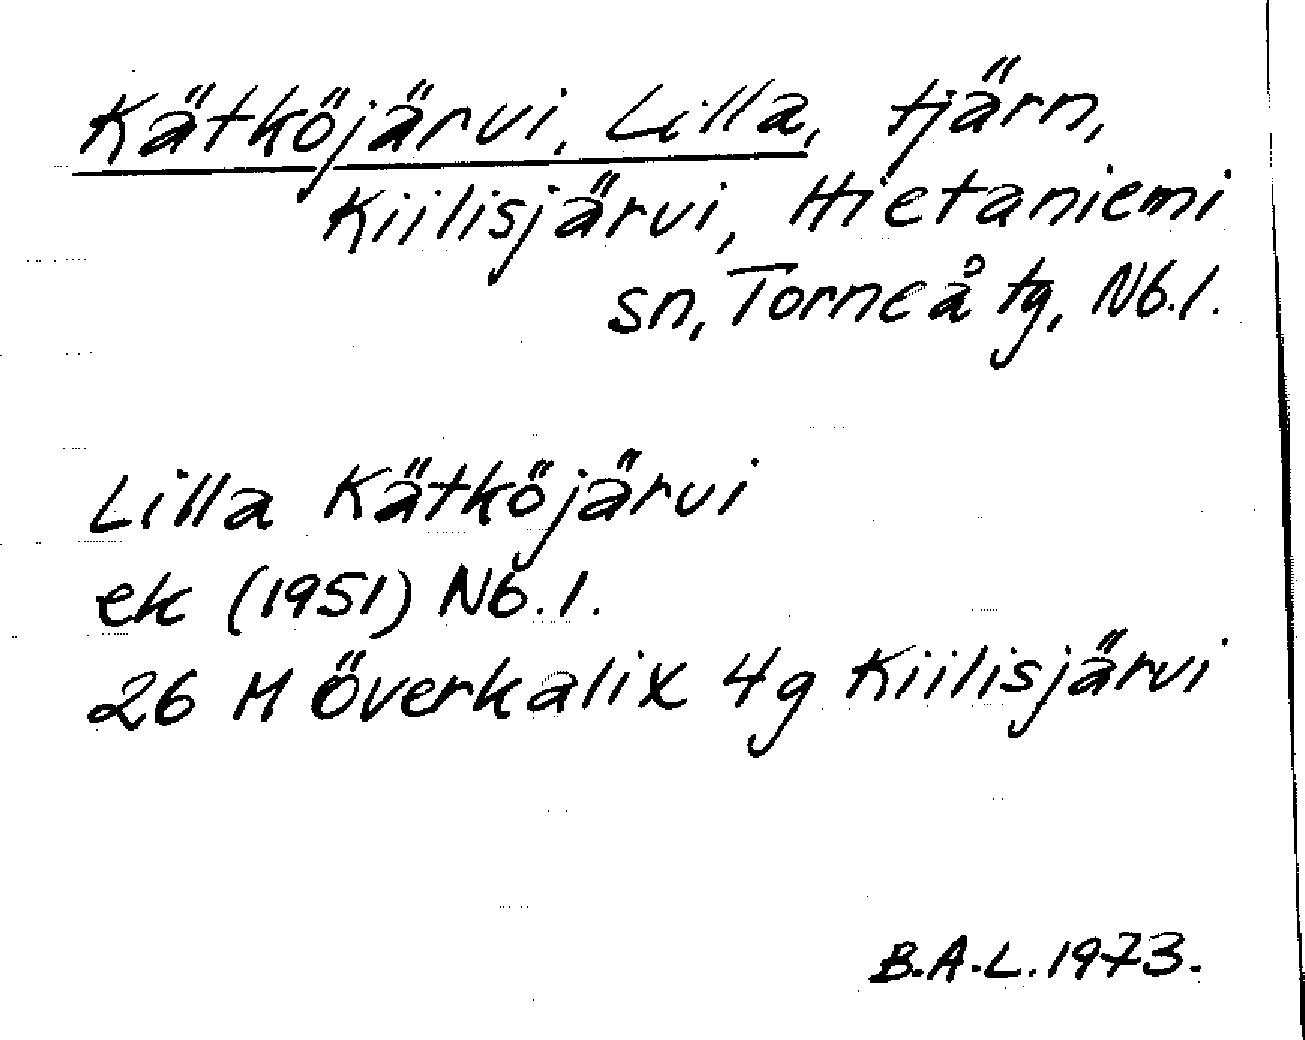 Kätköjärvi, Lilla, tjärn,
Kiilisjärvi, Hietaniemi
sn, Torneå tg, Nb.l.
Lilla Kätköjärvi
ek (1951) Nb.l.
26 M Överkalix 4g Kiilisjärvi
B.A.L. 1973.